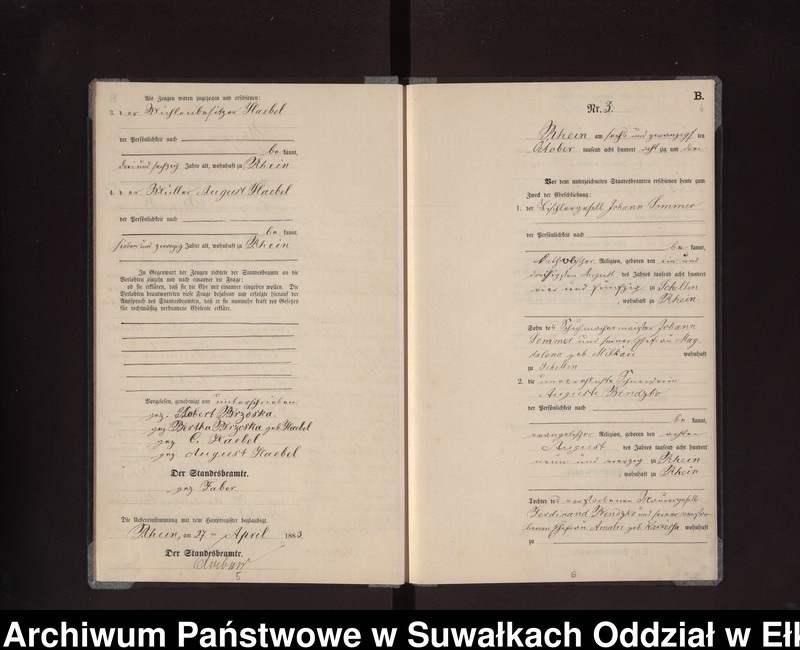 Als Zeugen waren zugezogen und erschienen:
3. der Mühlenbesitzer Kaebel
der Persönlichkeit nach
be kannt,
drei und sechzig Jahre alt, wohnhaft zu Rhein
4. der Müller August Kaebel
der Persönlichkeit nach
be kannt,
sieben und zwanzig Jahre alt, wohnhaft zu Rhein
In Gegenwart der Zeugen richtete der Standesbeamte an die
Verlobten einzeln und nach einander die Frage:
ob sie erklären, daß sie die Ehe mit einander eingehen wollen. Die
Verlobten beantworteten diese Frage bejahend und erfolgte hierauf der
Ausspruch des Standesbeamten, daß er sie nunmehr kraft des Gesetzes
für rechtmäßig verbundene Eheleute erkläre.
Vorgelesen, genehmigt und unterschrieben
gez. Robert Brzoska
gez. Bertha Brzoska geb Kaebel
gez C. Kaebel
gez August Kaebel
Der Standesbeamte.
gez Faber
Die Uebereinstimmung mit dem Hauptregister beglaubigt
Rhein, am 27 ten April 1883
Der Standesbeamte.
5
B.
Nr. 3
Rhein am sechs und zwanzigsten
October tausend acht hundert achtzig und drei
Vor dem unterzeichneten Standesbeamten erschienen heute zum
Zweck der Eheschließung:
1. der Tischlergesell Johann Sommer
der Persönlichkeit nach
be kannt,
katholischer Religion, geboren den ein und
dreißigsten August des Jahres tausend acht hundert
vier und fünfzig zu Schellen
, wohnhaft zu Rhein
Sohn des Schuhmachermeister Johann
Sommer und seiner Ehefrau Mag-
dalena geb wohnhaft
zu Schellen
2. die unverehelichte Schneiderin
Auguste Bendzko
der Persönlichkeit nach
be kannt,
evangelischer Religion, geboren den achten
August des Jahres tausend acht hundert
neun und vierzig zu Rhein
, wohnhaft zu Rhein
Tochter des verstorbenen Maurergesell
Ferdinand Bendzko und seiner verstor-
benen Ehefrau Amalie geb wohnhaft
zu
6
Archiwum Państwowe w Suwałkach Oddział w Ełk